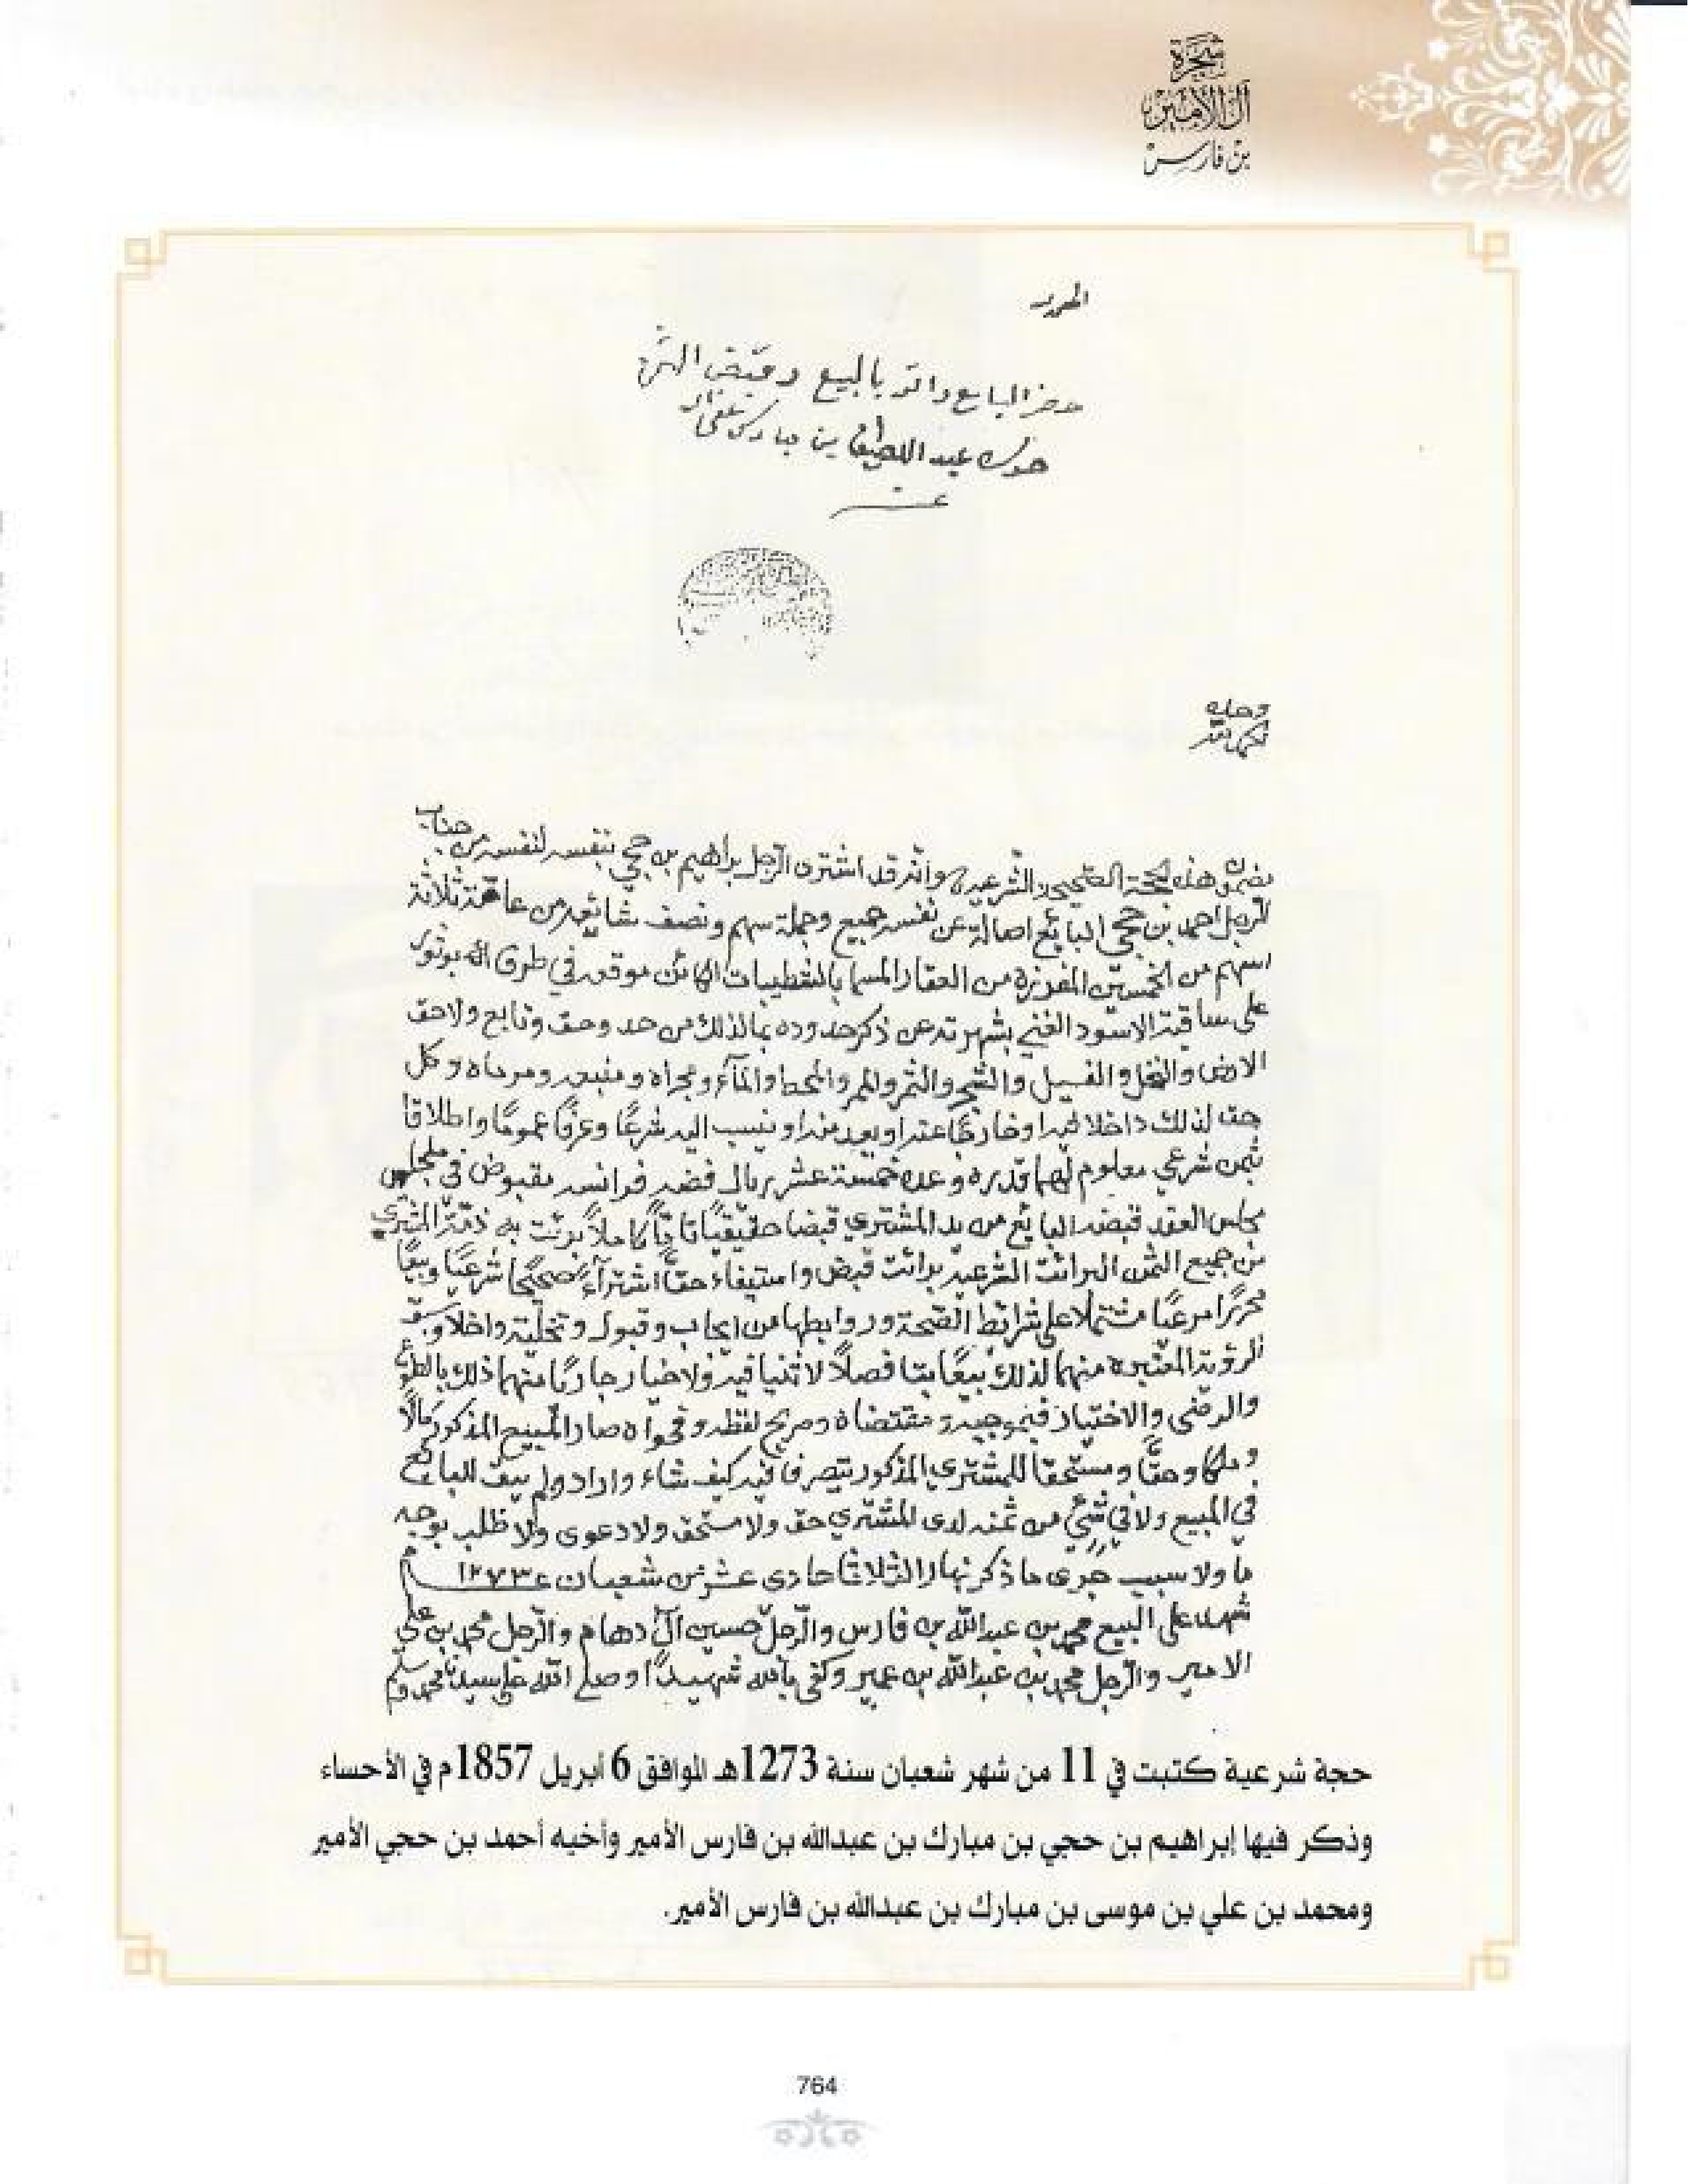 شجرة
آل الأمير
بن فارس
حضر البايع واقر بالبيع وقبض الثمن
عبد اللطيف بن مبارك
بحمد الله
وحده
مضمون هذه الحجة الصحيحة الشرعية وانه قد اشترى الرجل براهيم بن حجي بنفسه لنفسه من جناب
الرجل احمد بن حجي البايع اصالة عن نفسه جميع وجملة سهم ونصف شائعه من عامة ثلاثة
اسهم من الخمسين المفرزة من العقار المسما بالشطيبات الكائن موقعه في طرف
على ساقية الاسود الغني بشهرته عن ذكر حدوده بما لذلك من حد وحق وتابع ولاحق
الارض والنخل والفسيل والشجر والثمر والممر والمحط والمآء ومجراه ومنبعه ومرماه وكل
حق لذلك داخلا فيه او خارجًا عنه او يعد منه او ينسب اليه شرعًا وعرفًا عمومًا واطلاقا
بثمن شرعي معلوم لهما قدره وعده خمسة عشر ريال فضه فرانسه مقبوض في مجلس
مجلس العقد قبضه البايع من يد المشتري قبضا حقيقيًا تامًا كاملاً برئت به ذمة المشتري
من جميع الثمن البرائت الشرعية برائت قبض واستيفاء حقًا اشترآءً صحيحًا شرعيًا وبيعًا
محررًا مرعيًا مشتملا على شرائط الصحة وروابطها من ايجاب وقبول وتخلية داخلا وسبق
الرؤية المعتبرة منهما لذلك بيعًا بتا فصلاً لا ثنيا فيه ولا خيار جاريًا منهما ذلك بالطوع
والرضى والاختيار فبموجبه ومقتضاه وصريح لفظه وفحواه صار المبيع المذكور مالًا
وملكا وحقًا ومستحقًا للمشتري المذكور يتصرف فيه كيف شاء واراد ولم يبق للبايع
في المبيع ولا في شئ من ثمنه لدى المشتري حق ولا مستحق ولا دعوى ولا طلب بوجه
ما ولا سبب جرى ما ذكر نهار الثلاثا حادى عشر من شعبان ١٢٧٣
شهد على البيع محمد بن عبدالله بن فارس والرجل حسين آل دهام والرجل محمد بن علي
الامير والرجل محمد بن عبدالله بن عمير وكفى بالله شهيدًا وصلى الله على سيدنا محمد وسلم
حجة شرعية كتبت في 11 من شهر شعبان سنة 1273هـ الموافق 6 أبريل 1857م في الأحساء
وذكر فيها إبراهيم بن حجي بن مبارك بن عبدالله بن فارس الأمير وأخيه أحمد بن حجي الأمير
ومحمد بن علي بن موسى بن مبارك بن عبدالله بن فارس الأمير.
764